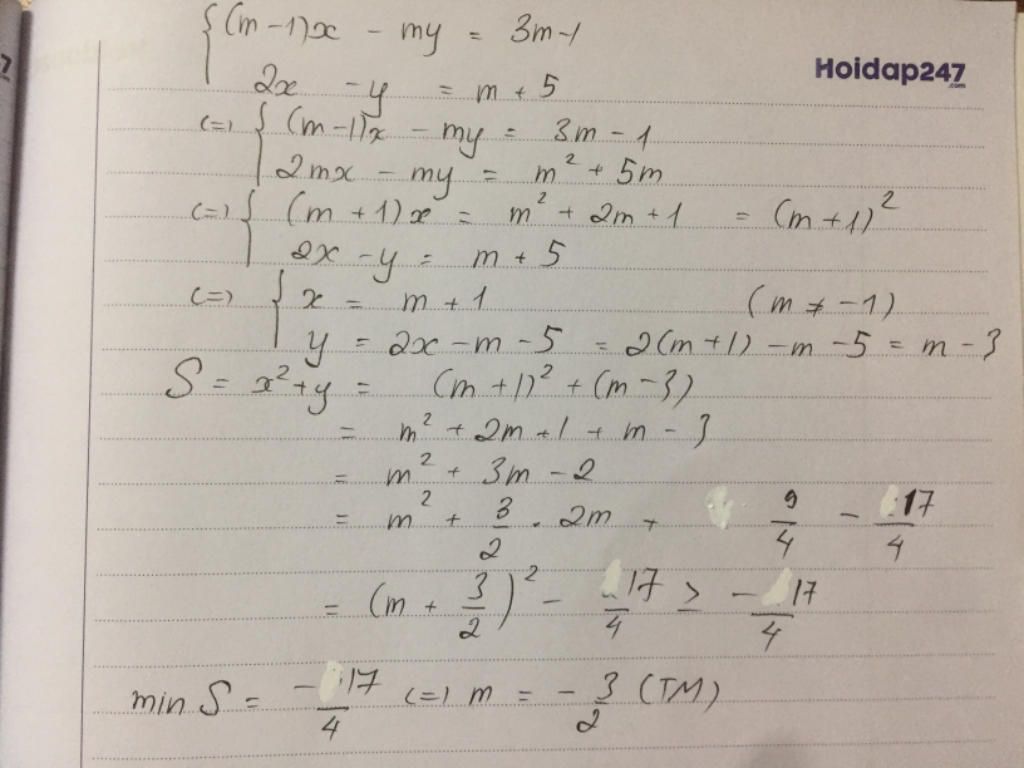 { (m-1)x - my = 3m-1
Hoidap247.com
2x - y = m + 5
(=) { (m-1)x - my = 3m - 1
2mx - my = m² + 5m
(=) { (m+1)x = m² + 2m + 1 = (m+1)²
2x - y = m + 5
(=) { x = m + 1 (m ≠ -1)
y = 2x - m - 5 = 2(m+1) - m - 5 = m - 3
S = x² + y = (m+1)² + (m-3)
= m² + 2m + 1 + m - 3
= m² + 3m - 2
= m² + 3/2 . 2m + 9/4 - 17/4
= (m + 3/2)² - 17/4 ≥ -17/4
min S = -17/4 (=) m = -3/2 (TM)